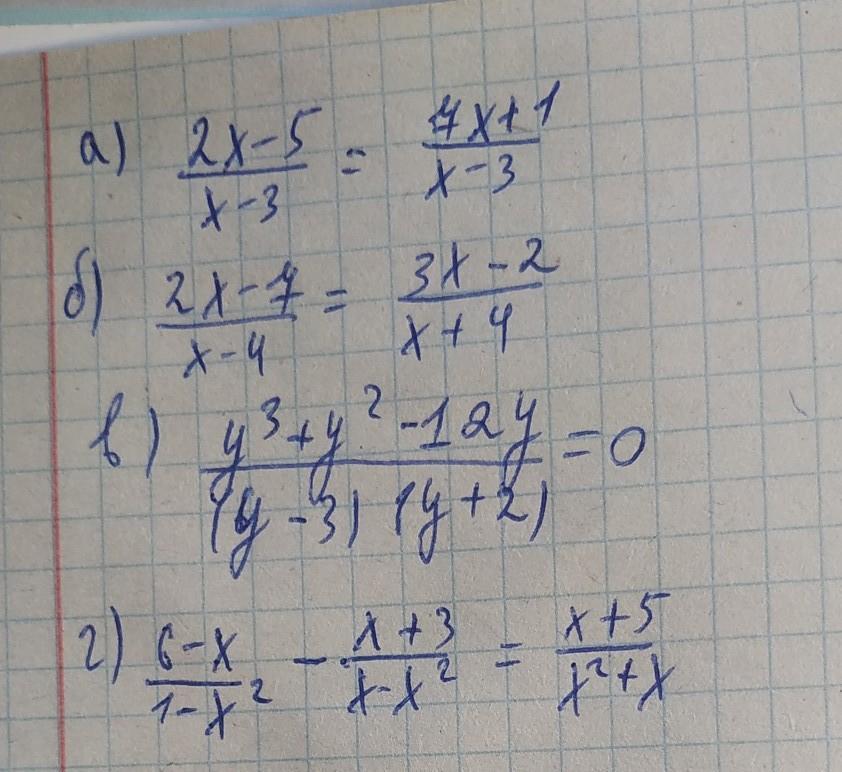 а) (2x-5)/(x-3) = (7x+1)/(x-3)
б) (2x-7)/(x-4) = (3x-2)/(x+4)
в) (y³+y²-12y)/((y-3)(y+2)) = 0
г) (6-x)/(1-x²) - (x+3)/(x-x²) = (x+5)/(x²+x)